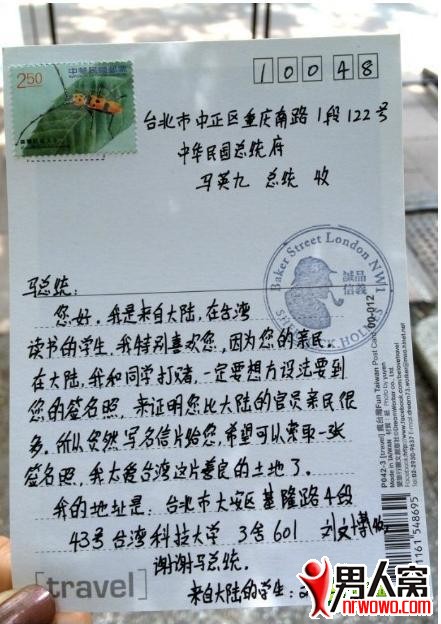 2.50
中華民國郵票
10048
台北市中正区重庆南路1段122号
中华民国总统府
马英九 总统 收
Baker Street London NW1
誠品
信義
马总统:
您好。我是来自大陆,在台湾
读书的学生,我特别喜欢您,因为您的亲民。
在大陆,我和同学打赌,一定要想方设法要到
您的签名照,来证明您比大陆的官员亲民很
多。所以突然写名信片给您,希望可以索取一张
签名照,我太爱台湾这片善良的土地了。
我的地址是:台北市大安区基隆路4段
43号台湾科技大学 3舍601 刘文博收
谢谢马总统。
来自大陆的学生:
[travel]
P042-3 [travel] 瘋台灣Fun Taiwan Post Card
Made in TAIWAN
00-012
男人窝
nrwowo.com